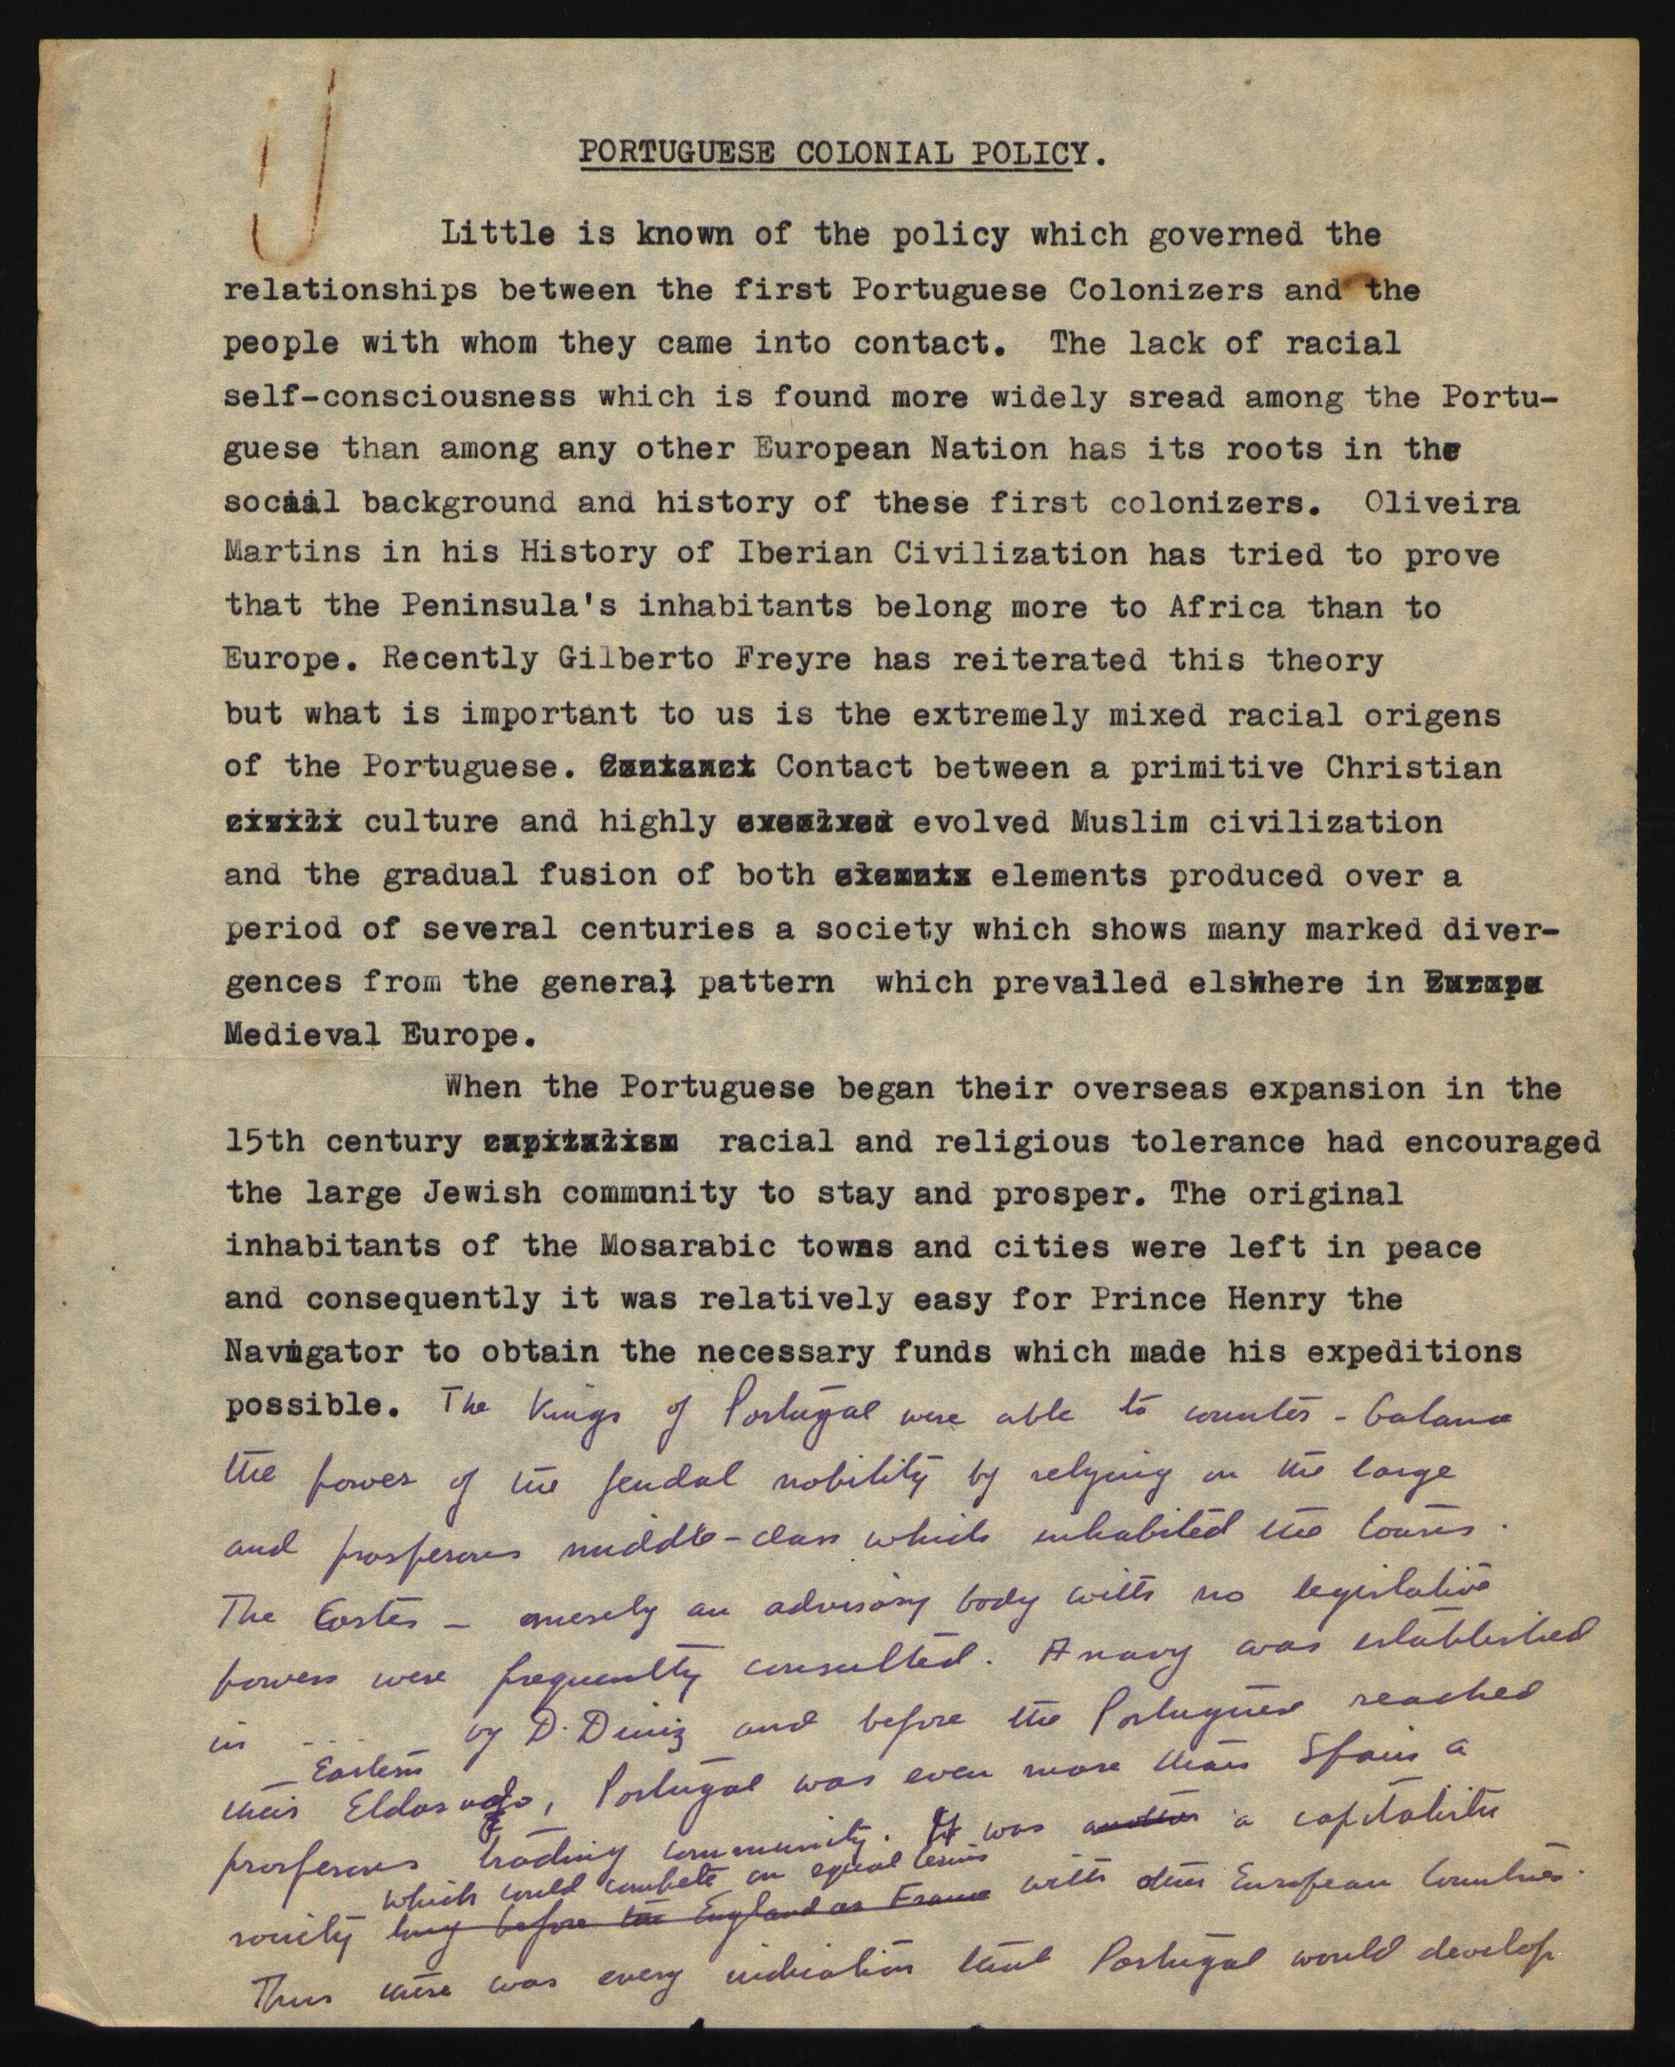 PORTUGUESE COLONIAL POLICY.
Little is known of the policy which governed the
relationships between the first Portuguese Colonizers and the
people with whom they came into contact. The lack of racial
self-consciousness which is found more widely sread among the Portu-
guese than among any other European Nation has its roots in the
social background and history of these first colonizers. Oliveira
Martins in his History of Iberian Civilization has tried to prove
that the Peninsula's inhabitants belong more to Africa than to
Europe. Recently Gilberto Freyre has reiterated this theory
but what is important to us is the extremely mixed racial origens
of the Portuguese. Contact between a primitive Christian
civili culture and highly evolved Muslim civilization
and the gradual fusion of both elements produced over a
period of several centuries a society which shows many marked diver-
gences from the general pattern which prevailed elswhere in Europe
Medieval Europe.
When the Portuguese began their overseas expansion in the
15th century capitalism racial and religious tolerance had encouraged
the large Jewish community to stay and prosper. The original
inhabitants of the Mosarabic towns and cities were left in peace
and consequently it was relatively easy for Prince Henry the
Navigator to obtain the necessary funds which made his expeditions
possible. The Kings of Portugal were able to counter-balance
the power of the feudal nobility by relying on the large
and prosperous middle-class which inhabited the towns.
The Cortes - merely an advisory body with no legislative
powers were frequently consulted. A navy was established
in ... by D. Diniz and before the Portuguese reached
Eastern
their Eldorado, Portugal was even more than Spain a
prosperous trading community. It was another a capitalistic
which could compete on equal terms
society long before the England or France with other European Countries.
Thus there was every indication that Portugal would develop